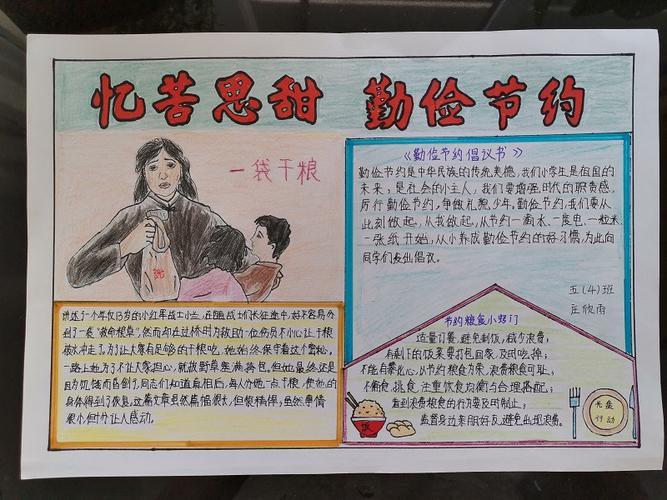 忆苦思甜 勤俭节约
一袋干粮
谢
讲述了一个年仅13岁的小红军战士小兰，在随战士们长征途中，好不容易分
到了一袋“救命粮草”。然而却在过桥时为救助一位伤员不小心让干粮
被水冲走了。为了让大家有足够的干粮吃，她始终保守着这个秘密。
一路上她为了不让大家担心，就拔野草塞满挎包，但她最终还是
因为饥饿而昏倒了。同志们知道真相后，每人分她一点干粮，使她的
身体得到了恢复。这篇文章虽然篇幅很大，但很精悍，虽然事情
很小，但十分让人感动。
《勤俭节约倡议书》
勤俭节约是中华民族的传统美德，我们小学生是祖国的
未来，是社会的小主人，我们要增强时代的职责感，
厉行勤俭节约，争做礼貌少年，勤俭节约，我们要从
此刻做起，从我做起，从节约一滴水、一度电、一粒米、
一张纸开始，从小养成勤俭节约的好习惯，为此向
同学们发出倡议。
五（4）班
庄欣雨
节约粮食小窍门
适量订餐，避免剩饭，减少浪费；
有剩下的饭菜要打包回家，及时吃掉；
不能有攀比心，以节约粮食为荣，浪费粮食可耻；
不偏食，挑食，注重饮食均衡与合理搭配；
看到浪费粮食的行为要及时制止；
监督身边亲朋好友，避免出现浪费。
饭
光盘
行动